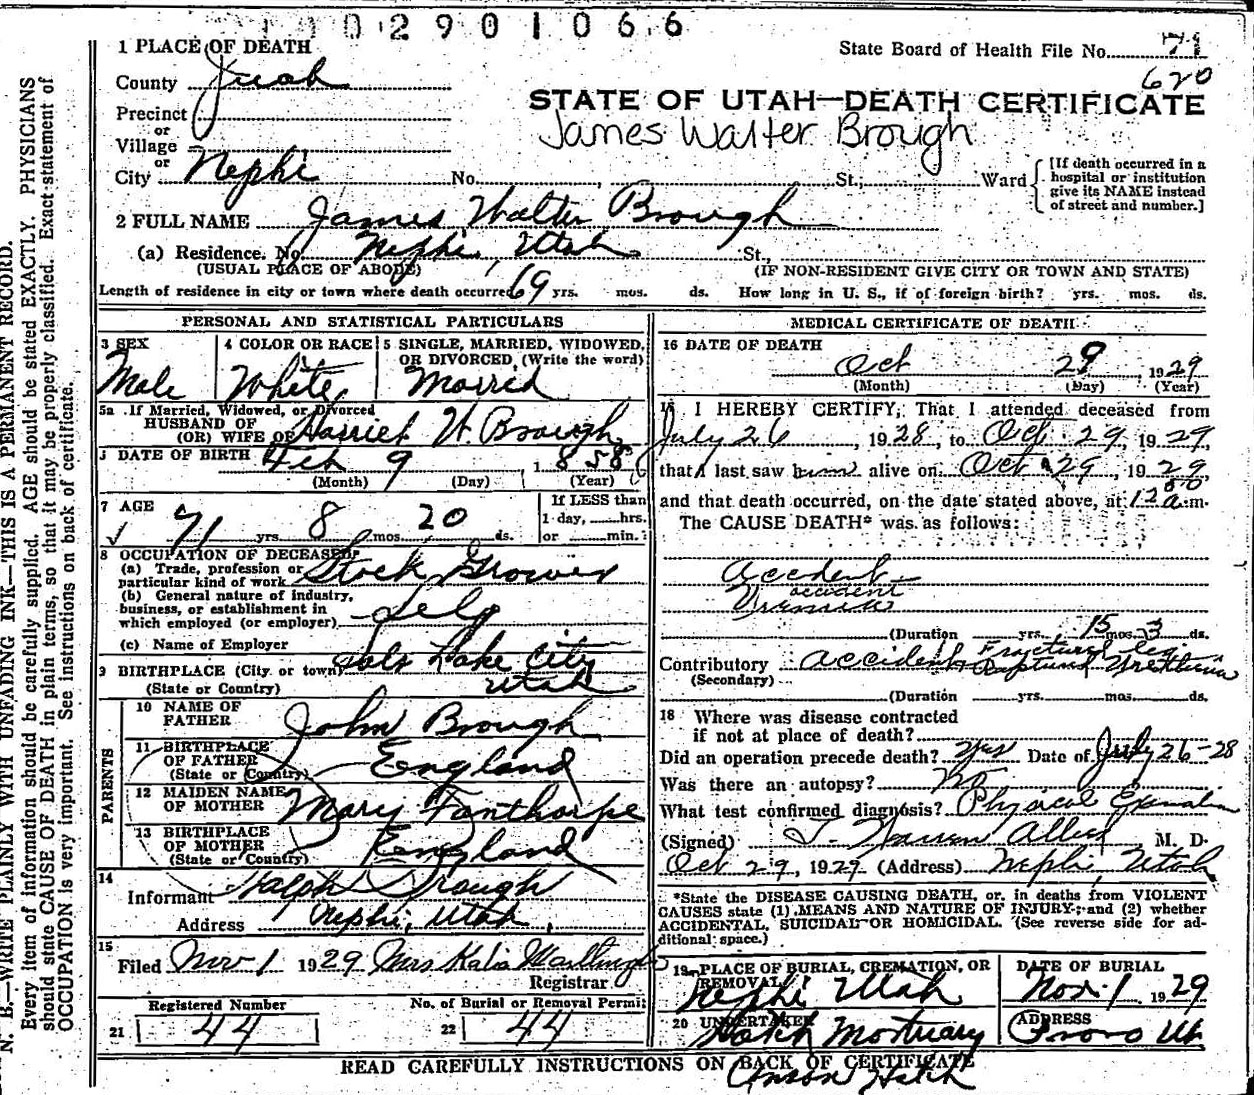 0 2 9 0 1 0 6 6
1 PLACE OF DEATH
State Board of Health File No. 71
County Juab
620
STATE OF UTAH—DEATH CERTIFICATE
Precinct
or
James Walter Brough
Village
or
City Nephi No. St.; Ward
[If death occurred in a
hospital or institution
give its NAME instead
of street and number.]
2 FULL NAME James Walter Brough
(a) Residence. No. Nephi, Utah St.,
(USUAL PLACE OF ABODE) (IF NON-RESIDENT GIVE CITY OR TOWN AND STATE)
Length of residence in city or town where death occurred 69 yrs. mos. ds. How long in U. S., if of foreign birth? yrs. mos. ds.
PERSONAL AND STATISTICAL PARTICULARS
3 SEX
Male
4 COLOR OR RACE
White
5 SINGLE, MARRIED, WIDOWED,
OR DIVORCED, (Write the word)
Married
5a If Married, Widowed, or Divorced
HUSBAND OF
(OR) WIFE OF Harriet W. Brough
DATE OF BIRTH Feb 9 1858
(Month) (Day) (Year)
7 AGE
71 yrs 8 mos. 20 ds.
If LESS than
1 day, hrs.
or min.
8 OCCUPATION OF DECEASED
(a) Trade, profession or
particular kind of work Stock Grower
(b) General nature of industry,
business, or establishment in
which employed (or employer) Self
(c) Name of Employer
9 BIRTHPLACE (City or town) Salt Lake City
(State or Country) Utah
PARENTS
10 NAME OF
FATHER John Brough
11 BIRTHPLACE
OF FATHER England
(State or Country)
12 MAIDEN NAME
OF MOTHER Mary Fanthorpe
13 BIRTHPLACE
OF MOTHER England
(State or Country)
14
Informant Ralph Brough
Address Nephi, Utah
15
Filed Nov 1 1929 Mrs
Registrar
Registered Number
21 44
No. of Burial or Removal Permit
22 44
MEDICAL CERTIFICATE OF DEATH
16 DATE OF DEATH
Oct 29 1929
(Month) (Day) (Year)
17 I HEREBY CERTIFY, That I attended deceased from
July 26, 1928, to Oct 29, 1929,
that I last saw him alive on Oct 29, 1929
and that death occurred, on the date stated above, at 12 00 a.m.
The CAUSE DEATH* was as follows:
Accident
accident
Uremia
(Duration yrs. 15 mos. 3 ds.
Contributory accident Fractured leg
(Secondary) Ruptured Urethra
(Duration yrs. mos. ds.
18 Where was disease contracted
if not at place of death?
Did an operation precede death? Yes Date of July 26-28
Was there an autopsy? No
What test confirmed diagnosis? Physical
(Signed) T. Warren Allred M. D.
Oct 29, 1929 (Address) Nephi, Utah
*State the DISEASE CAUSING DEATH, or, in deaths from VIOLENT
CAUSES state (1) MEANS AND NATURE OF INJURY; and (2) whether
ACCIDENTAL, SUICIDAL OR HOMICIDAL. (See reverse side for ad-
ditional space.)
19 PLACE OF BURIAL, CREMATION, OR
REMOVAL
Nephi Utah
DATE OF BURIAL
Nov. 1 1929
20 UNDERTAKER
Hatch Mortuary
ADDRESS
Provo Ut
READ CAREFULLY INSTRUCTIONS ON BACK OF CERTIFICATE
Anson Hatch
N. B.—WRITE PLAINLY WITH UNFADING INK—THIS IS A PERMANENT RECORD.
Every item of information should be carefully supplied. AGE should be stated EXACTLY. PHYSICIANS
should state CAUSE OF DEATH in plain terms, so that it may be properly classified. Exact statement of
OCCUPATION is very important. See instructions on back of certificate.